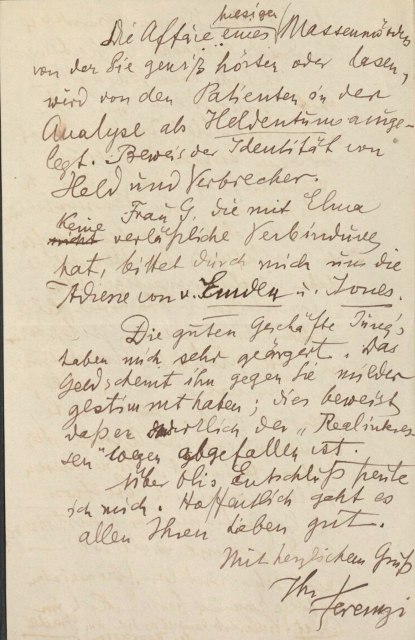 hiesigen
Die Affäre eines Massenmörders
von der Sie gewiß hörten oder lasen,
wird von den Patienten in der
Analyse als Heldentum ausge-
legt. Beweis der Identität von
Held und Verbrecher.
Frau G. die mit Elma
keine nicht verläßliche Verbindung
hat, bittet durch mich um die
Adresse von v. Emden u. Jones.
Die guten Geschäfte Jung's
haben mich sehr geärgert. Das
Geld scheint ihn gegen Sie milder
gestimmt haben; dies beweist
daß er der „Realinteres
sen" wegen abgefallen ist.
Über Olis Entschluß freute
ich mich. Hoffentlich geht es
allen Ihren Lieben gut.
Mit herzlichem Gruß
Ihr
Ferenczi